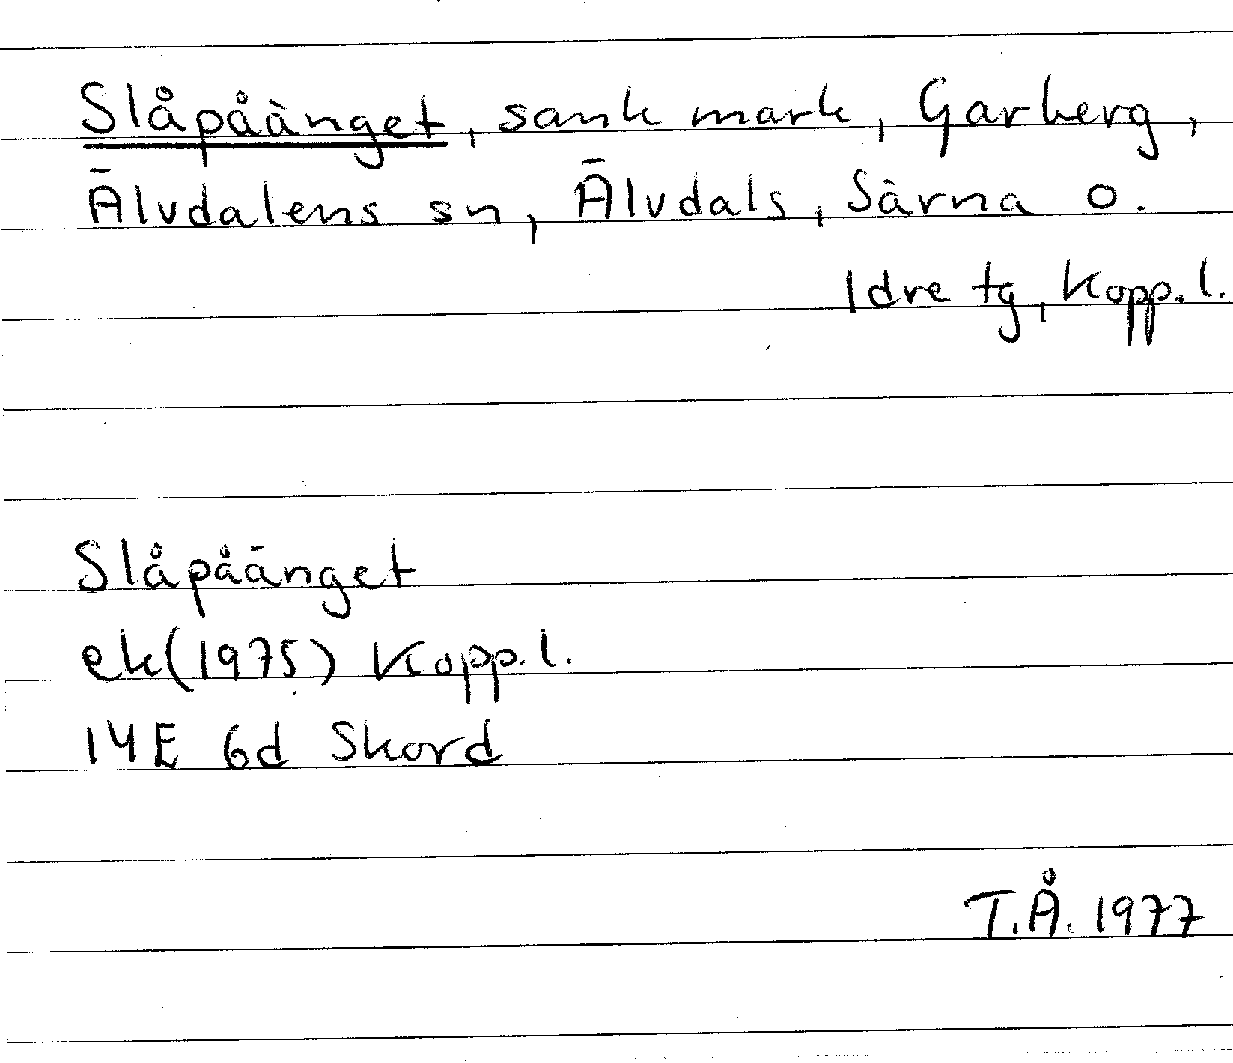 Slåpåänget, sank mark, Garberg,
Älvdalens sn, Älvdals, Särna o.
Idre tg, Kopp.l.
Slåpåänget
ek(1975) Kopp.l.
14E 6d Skord
T.Å. 1977